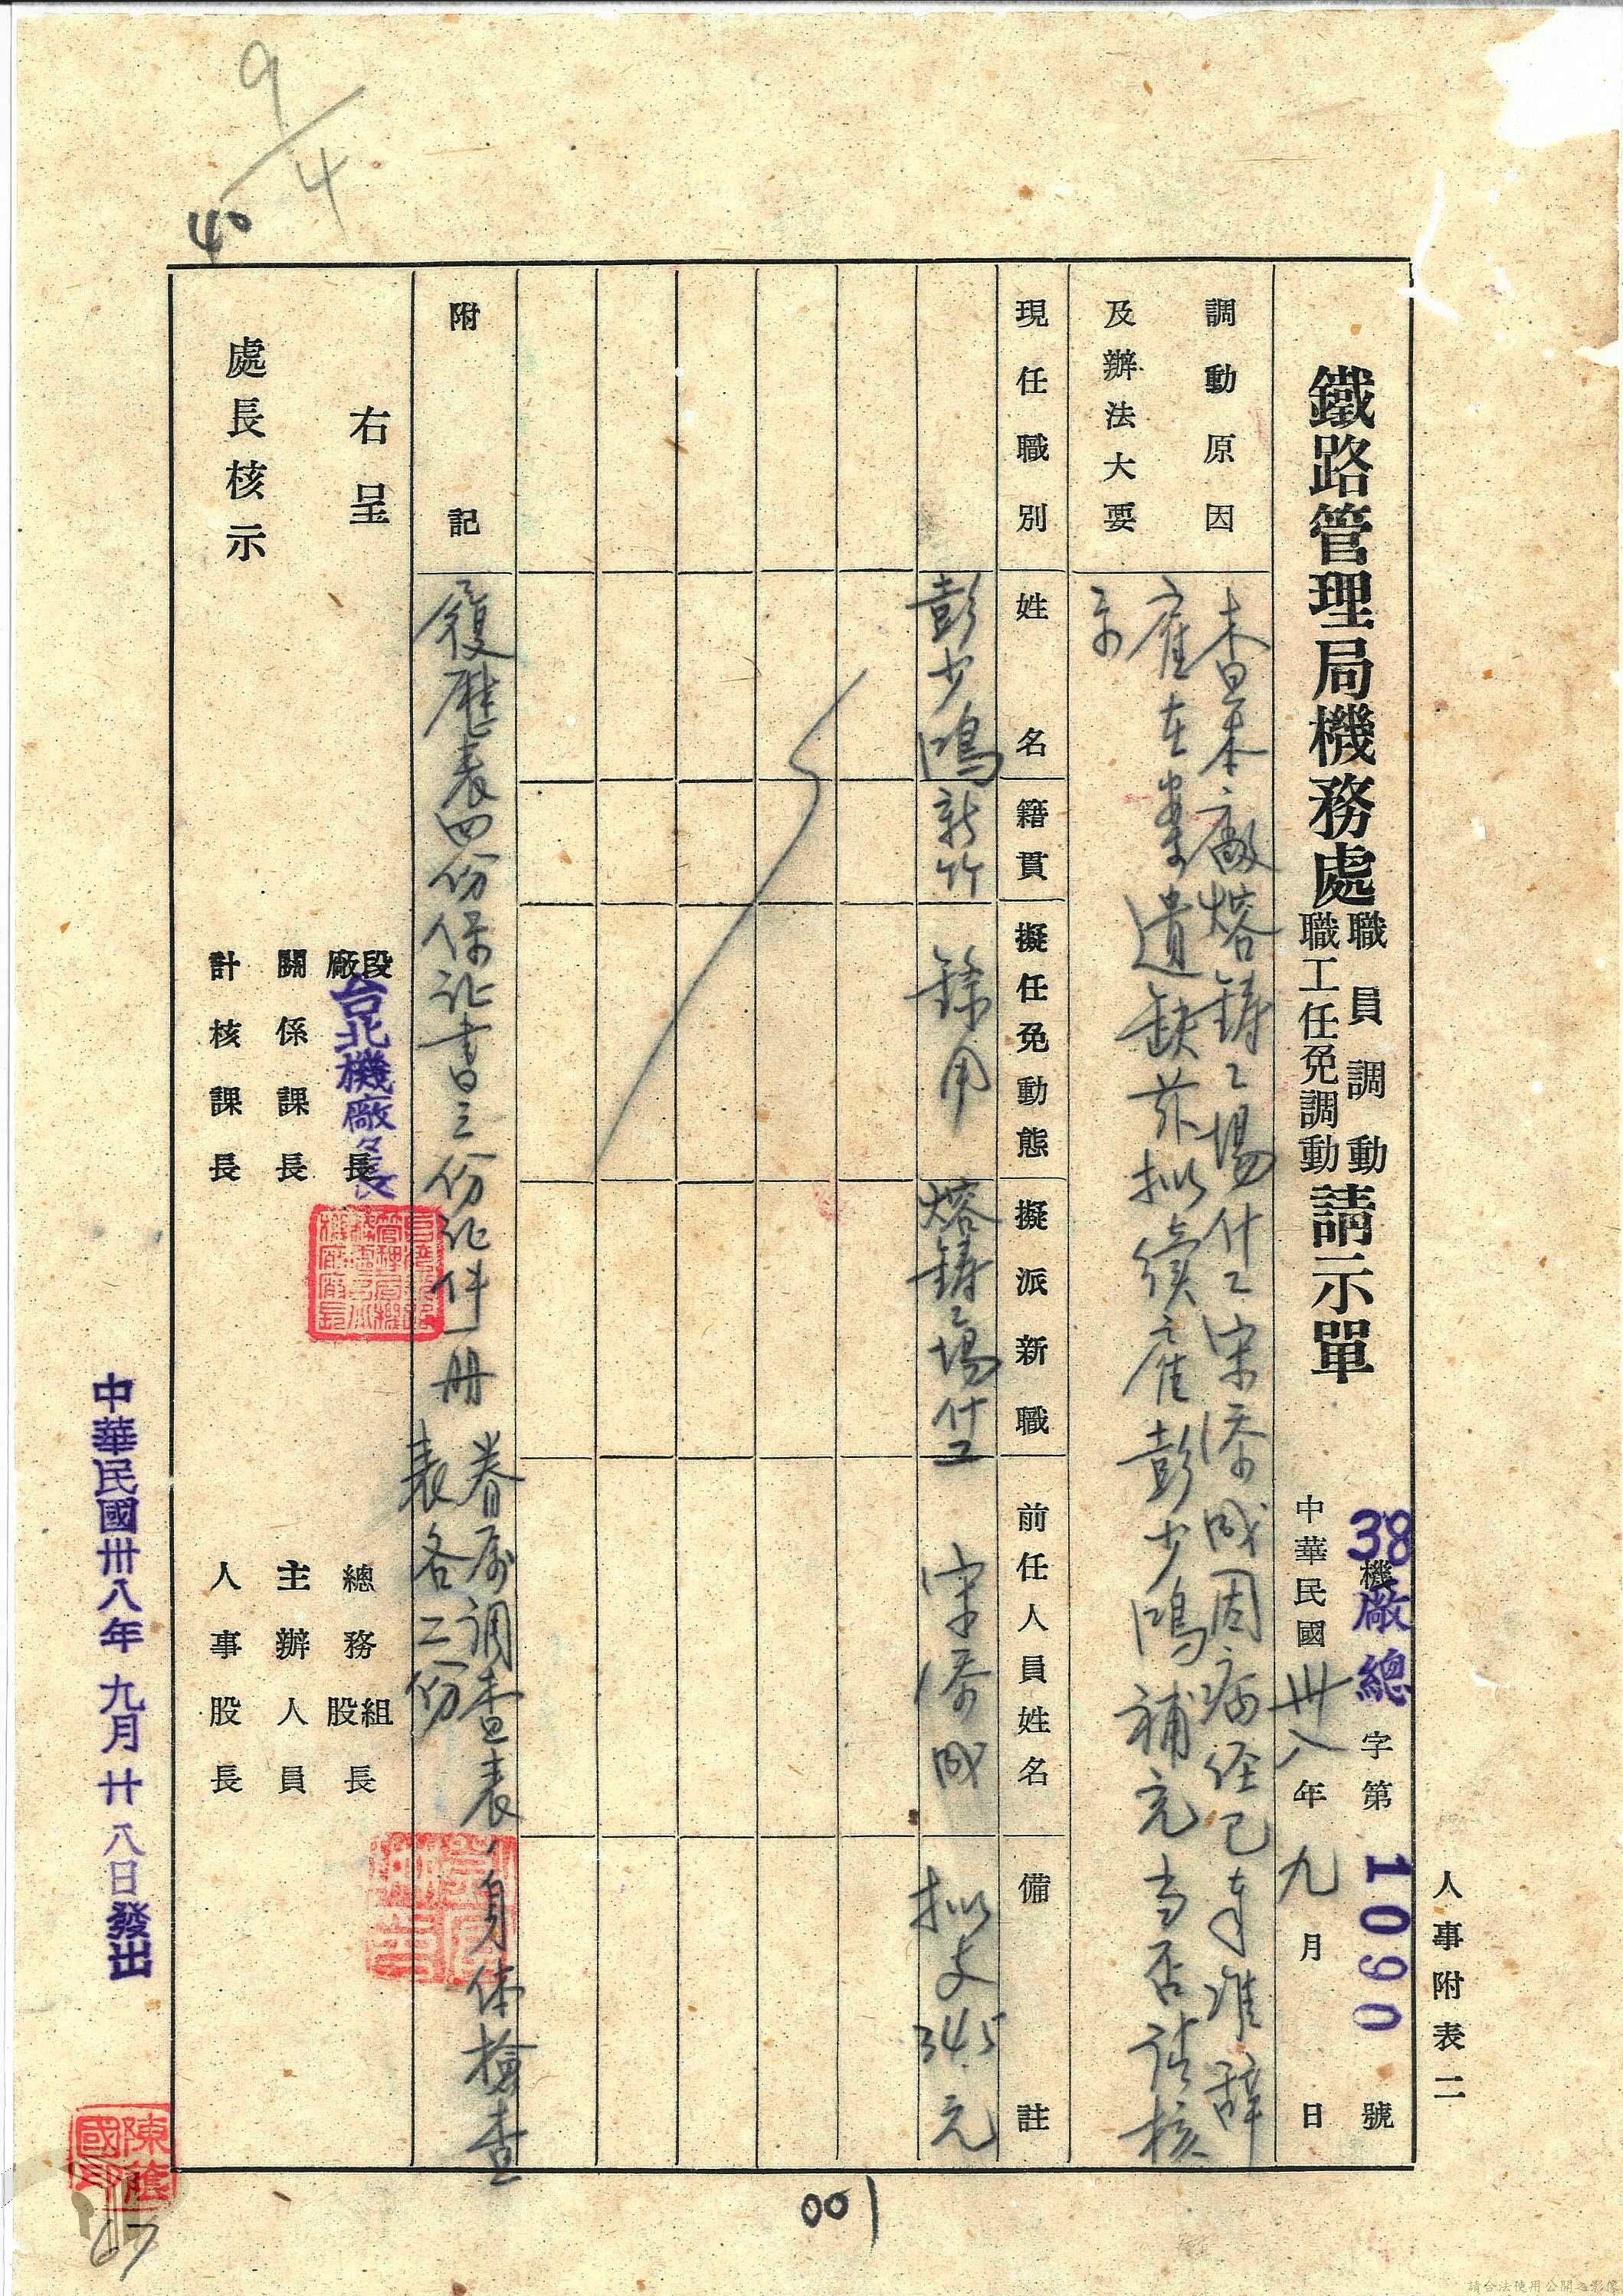 人事附表二
38機廠總字第1090號
鐵路管理局機務處職員調動職工任免調動請示單
中華民國卅八年九月 日
調動原因及辦法大要
查本廠熔鑄工場什工宋添成因病經已奉准辭
雇在案遺缺茲擬續雇彭少鴻補充當否請核
示
現任職別 姓名 籍貫 擬任免動態 擬派新職 前任人員姓名 備註
彭少鴻 新竹 錄用 熔鑄工場什工 宋添成 擬支345元
附記
履歷表四份保証書三份証件一冊
眷屬調查表、身体檢查
表各二份
右呈
處長核示
段廠長 台北機廠廠長
關係課長
計核課長
總務組股長
主辦人員
人事股長
中華民國卅八年九月廿八日發出
9/4
40
001
67
請合法使用公開之影像